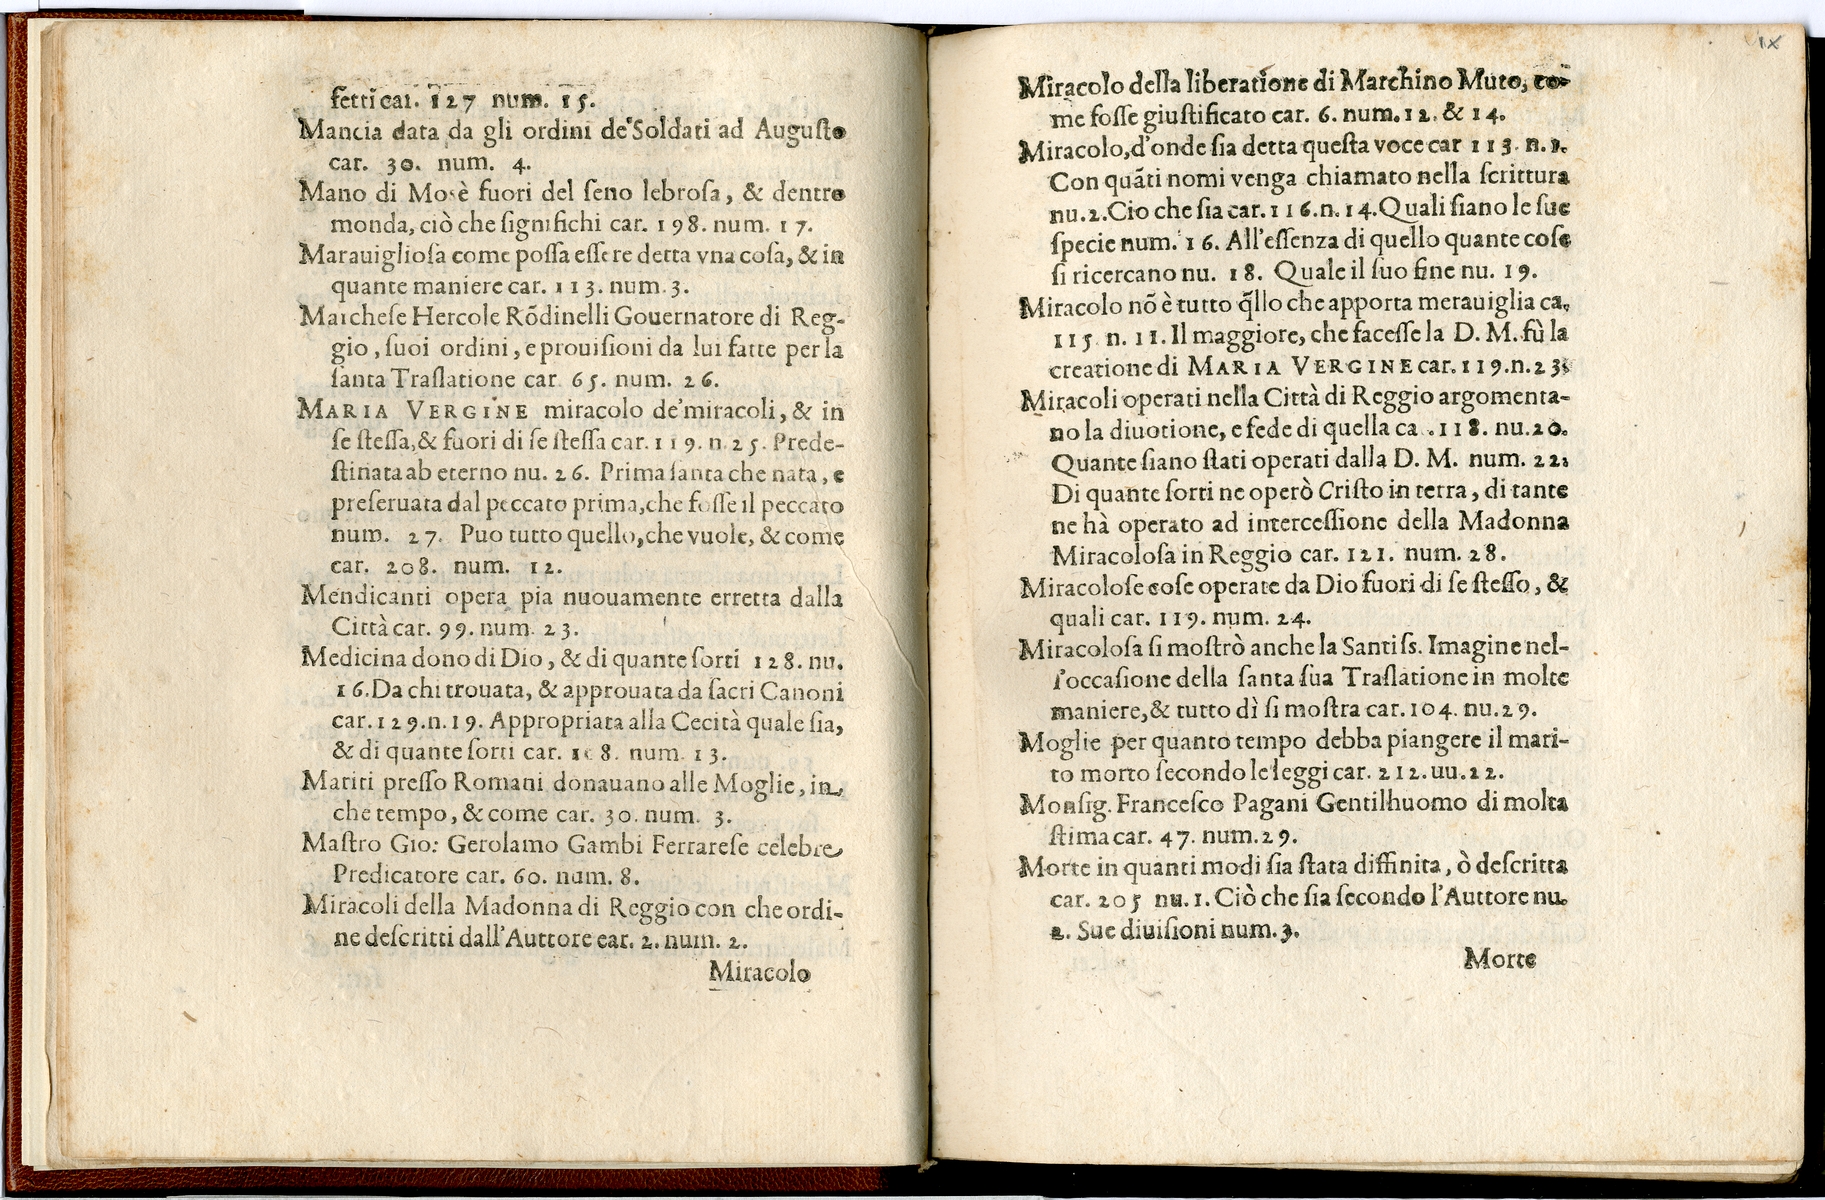 fetti car. 127 num. 15.
Mancia data da gli ordini de'Soldati ad Augusto
car. 30. num. 4.
Mano di Mosè fuori del ſeno lebroſa, & dentro
monda, ciò che ſignifichi car. 198. num. 17.
Marauiglioſa come poſſa eſſere detta vna coſa, & in
quante maniere car. 113. num. 3.
Marcheſe Hercole Rõdinelli Gouernatore di Reg-
gio, ſuoi ordini, e prouiſioni da lui fatte per la
ſanta Traſlatione car. 65. num. 26.
MARIA VERGINE miracolo de'miracoli, & in
ſe ſteſſa, & fuori di ſe ſteſſa car. 119. n. 25. Prede-
ſtinata ab eterno nu. 26. Prima ſanta che nata, e
preſeruata dal peccato prima, che foſſe il peccato
num. 27. Puo tutto quello, che vuole, & come
car. 208. num. 12.
Mendicanti opera pia nuouamente erretta dalla
Città car. 99. num. 23.
Medicina dono di Dio, & di quante ſorti 128. nu.
16. Da chi trouata, & approuata da ſacri Canoni
car. 129. n. 19. Appropriata alla Cecità quale ſia,
& di quante ſorti car. num. 13.
Mariti preſſo Romani donauano alle Moglie, in
che tempo, & come car. 30. num. 3.
Maſtro Gio: Gerolamo Gambi Ferrareſe celebre
Predicatore car. 60. num. 8.
Miracoli della Madonna di Reggio con che ordi-
ne deſcritti dall'Auttore car. 2. num. 2.
Miracolo
IX
Miracolo della liberatione di Marchino Muto, co-
me foſſe giuſtificato car. 6. num. 12. & 14.
Miracolo, d'onde ſia detta queſta voce car 113. n. 1.
Con quãti nomi venga chiamato nella ſcrittura
nu. 2. Cio che ſia car. 116. n. 14. Quali ſiano le ſue
ſpecie num. 16. All'eſſenza di quello quante coſe
ſi ricercano nu. 18. Quale il ſuo fine nu. 19.
Miracolo nõ è tutto q̃llo che apporta merauiglia ca.
115. n. 11. Il maggiore, che faceſſe la D. M. fù la
creatione di MARIA VERGINE car. 119. n. 23.
Miracoli operati nella Città di Reggio argomenta-
no la diuotione, e fede di quella ca . 118. nu. 20.
Quante ſiano ſtati operati dalla D. M. num. 22.
Di quante ſorti ne operò Criſto in terra, di tante
ne hà operato ad interceſſione della Madonna
Miracoloſa in Reggio car. 121. num. 28.
Miracoloſe coſe operate da Dio fuori di ſe ſteſſo, &
quali car. 119. num. 24.
Miracoloſa ſi moſtrò anche la Santiſs. Imagine nel-
l'occaſione della ſanta ſua Traſlatione in molte
maniere, & tutto dì ſi moſtra car. 104. nu. 29.
Moglie per quanto tempo debba piangere il mari-
to morto ſecondo le leggi car. 212. uu. 22.
Monſig. Franceſco Pagani Gentilhuomo di molta
ſtima car. 47. num. 29.
Morte in quanti modi ſia ſtata diffinita, ò deſcritta
car. 205 nu. 1. Ciò che ſia ſecondo l'Auttore nu.
2. Sue diuiſioni num. 3.
Morte